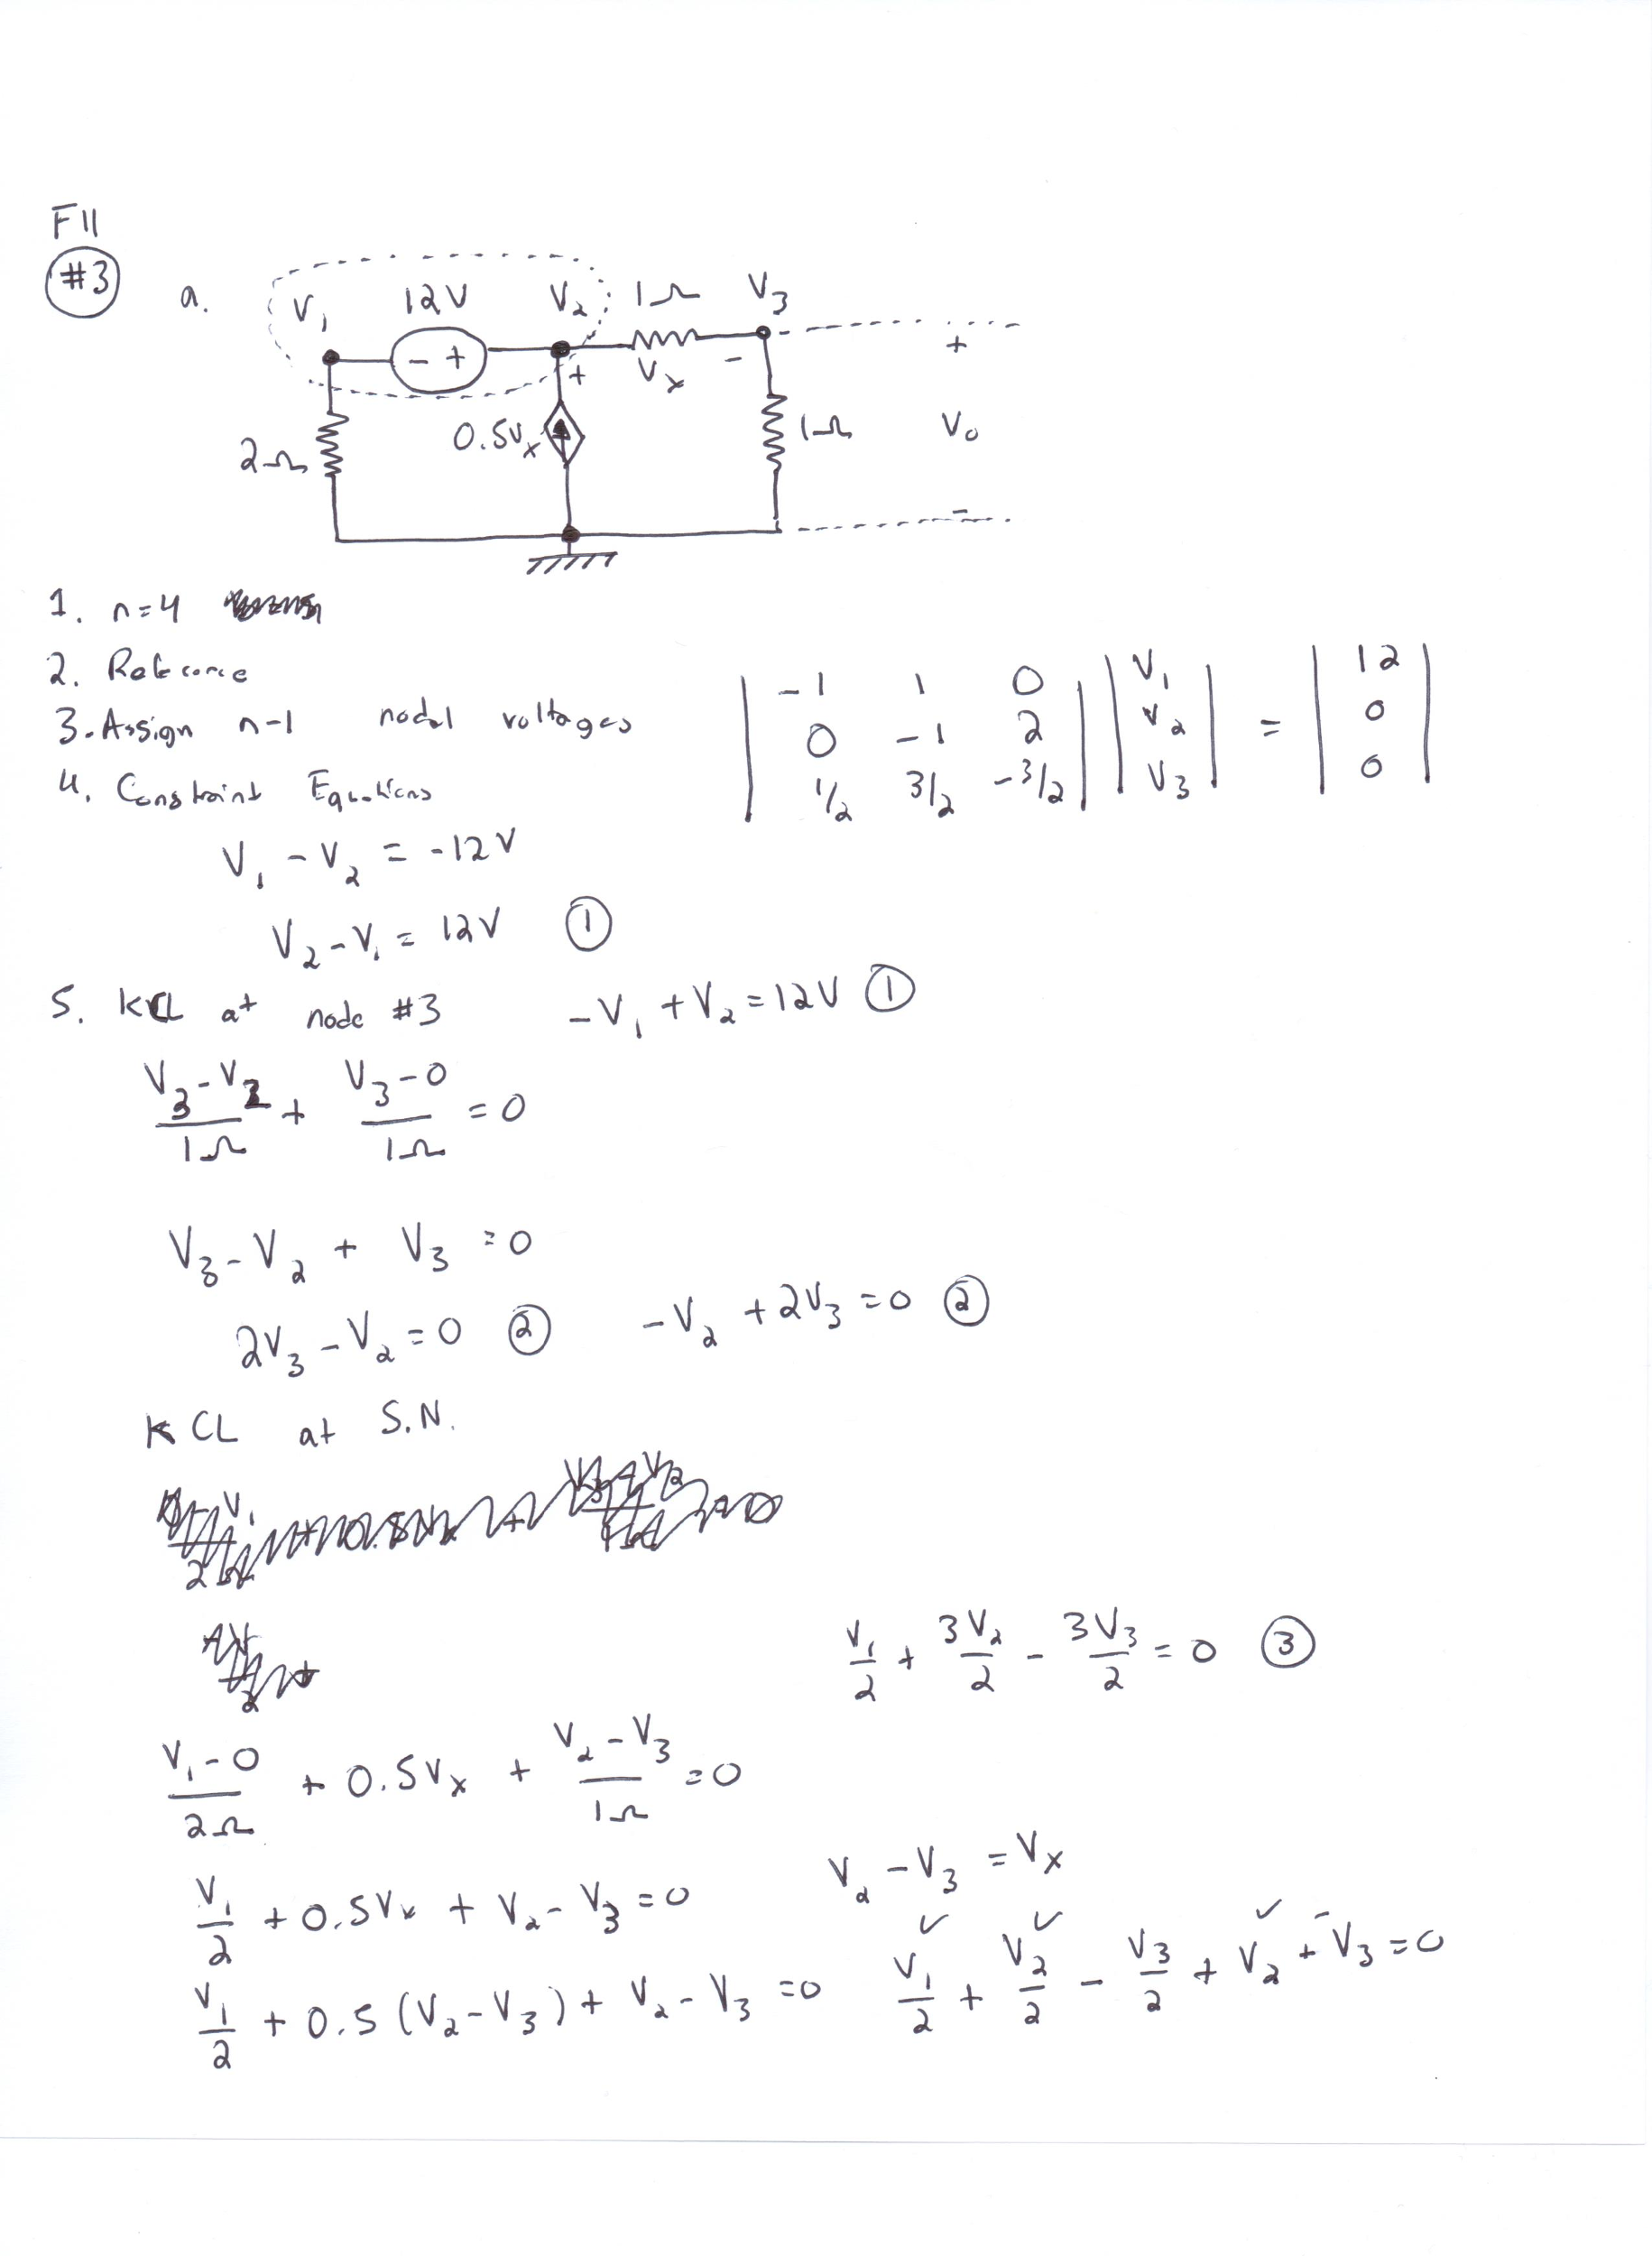 F11
#3
a.
V1 12V V2 1Ω V3
- +
+ Vx -
+
2Ω 0.5Vx 1Ω Vo
-
1. n=4
2. Reference
3. Assign n-1 nodal voltages
| -1 1 0 | | V1 | = | 12 |
| 0 -1 2 | | V2 | | 0 |
| 1/2 3/2 -3/2 | | V3 | | 0 |
4. Constraint Equations
V1 - V2 = -12V
V2 - V1 = 12V ①
5. KCL at node #3 -V1 + V2 = 12V ①
(V3 - V2)/1Ω + (V3 - 0)/1Ω = 0
V3 - V2 + V3 = 0
2V3 - V2 = 0 ② -V2 + 2V3 = 0 ②
KCL at S.N.
V1/2 + 3V2/2 - 3V3/2 = 0 ③
(V1 - 0)/2Ω + 0.5Vx + (V2 - V3)/1Ω = 0
V2 - V3 = Vx
V1/2 + 0.5Vx + V2 - V3 = 0
V1/2 + 0.5(V2 - V3) + V2 - V3 = 0 V1/2 + V2/2 - V3/2 + V2 + -V3 = 0